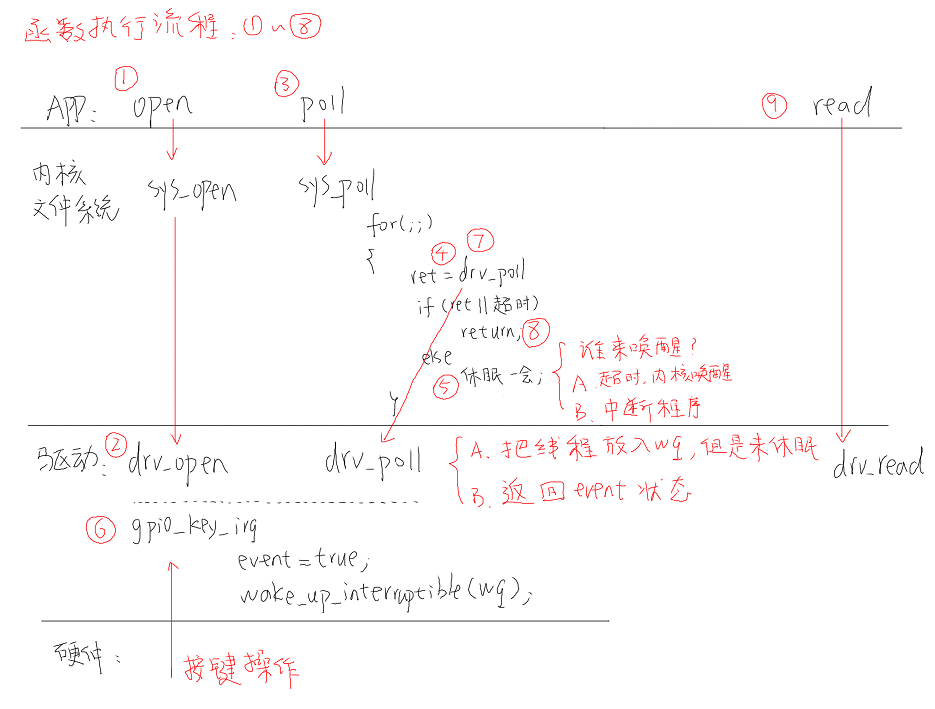 函数执行流程:①~⑧
① ③
APP: open poll ⑨ read
内核
文件系统 sys_open sys_poll
for(;;)
{ ④ ⑦
ret = drv_poll
if (ret || 超时)
return; ⑧
else
⑤ 休眠一会;
{ 谁来唤醒?
A. 超时,内核唤醒
B. 中断程序
驱动: ② drv_open drv_poll drv_read
{ A. 把线程放入wq, 但是未休眠
B. 返回event状态
⑥ gpio_key_irq
event = true;
wake_up_interruptible(wq);
硬件: 按键操作